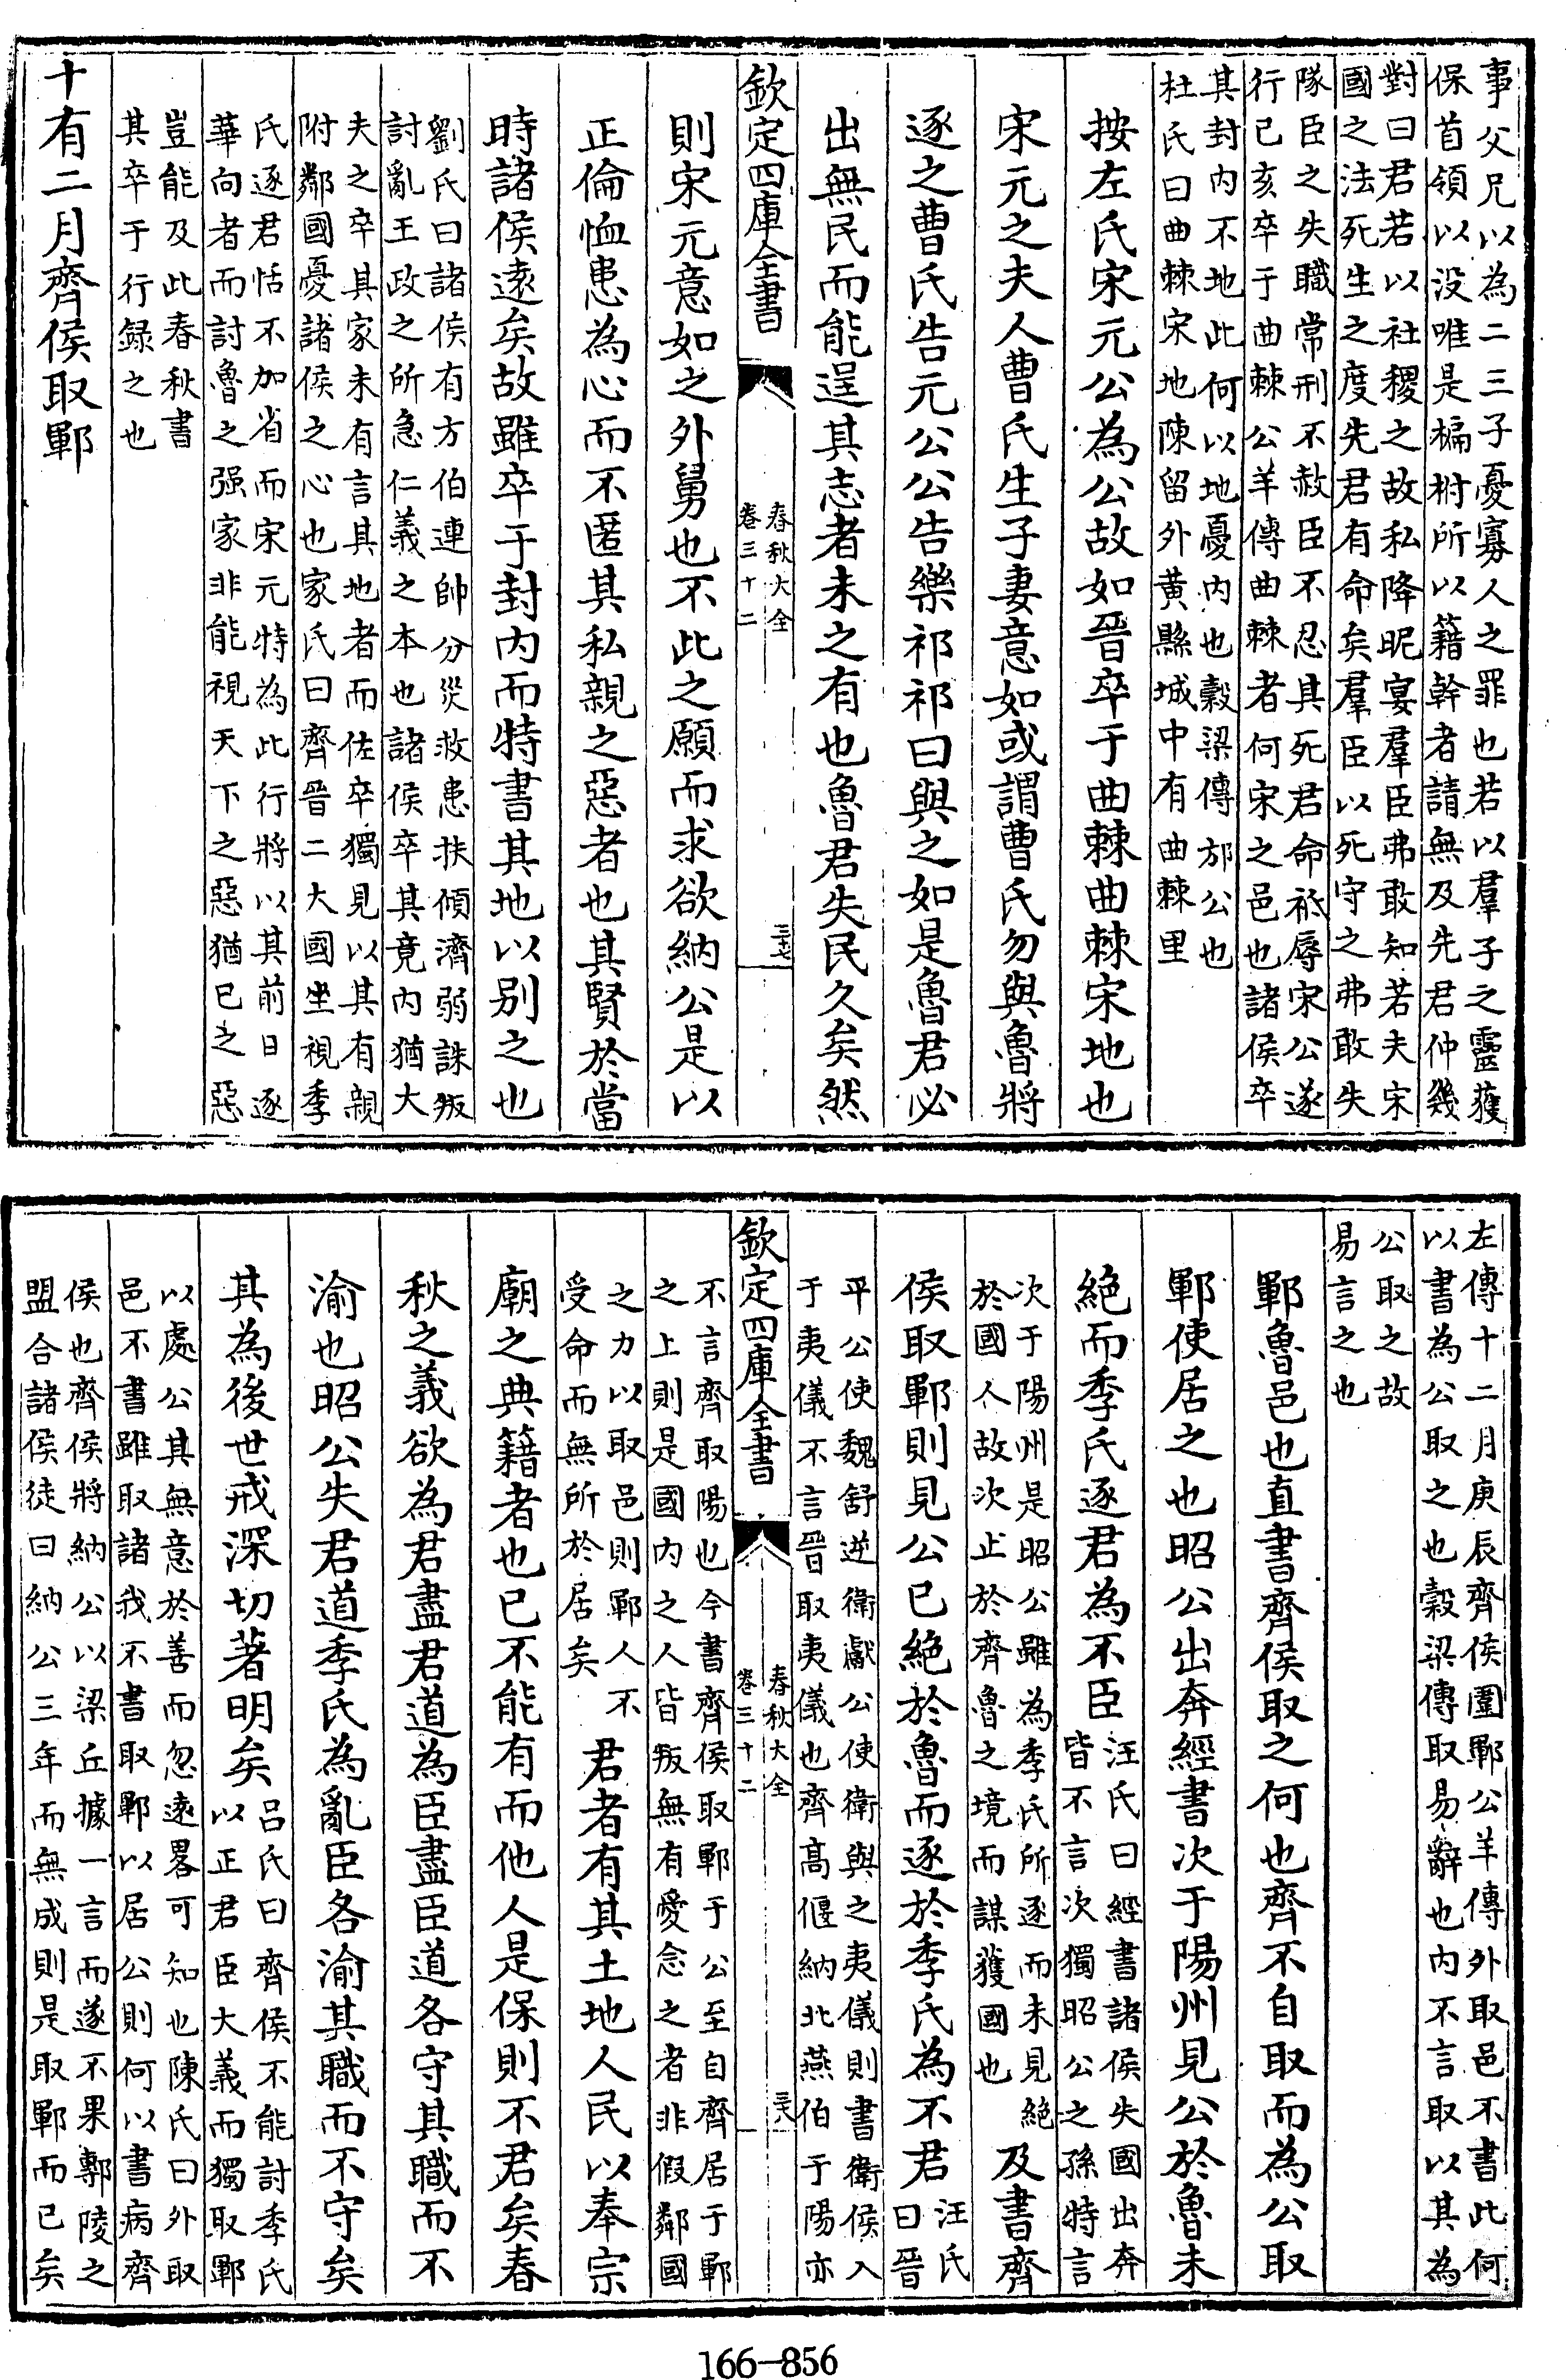 事父兄以為二三子憂寡人之罪也若以羣子之靈獲
保首領以没唯是楄柎所以籍幹者請無及先君仲幾
對曰君若以社稷之故私降昵宴羣臣弗敢知若夫宋
國之法死生之度先君有命矣羣臣以死守之弗敢失
隊臣之失職常刑不赦臣不忍其死君命祇辱宋公遂
行己亥卒于曲棘公羊傳曲棘者何宋之邑也諸侯卒
其封内不地此何以地憂内也穀梁傳邡公也
杜氏曰曲棘宋地陳留外黄縣城中有曲棘里
按左氏宋元公為公故如晉卒于曲棘曲棘宋地也
宋元之夫人曹氏生子妻意如或謂曹氏勿與魯將
逐之曹氏告元公公告樂祁祁曰與之如是魯君必
出無民而能逞其志者未之有也魯君失民久矣然
欽定四庫全書
春秋大全
卷三十二
三十七
則宋元意如之外舅也不此之願而求欲納公是以
正倫恤患為心而不匿其私親之惡者也其賢於當
時諸侯逺矣故雖卒于封内而特書其地以别之也
劉氏曰諸侯有方伯連帥分災救患扶傾濟弱誅叛
討亂王政之所急仁義之本也諸侯卒其竟内猶大
夫之卒其家未有言其地者而佐卒獨見以其有親
附鄰國憂諸侯之心也家氏曰齊晉二大國坐視季
氏逐君恬不加省而宋元特為此行將以其前日逐
華向者而討魯之强家非能視天下之惡猶已之惡
豈能及此春秋書
其卒于行録之也
十有二月齊侯取鄆
左傳十二月庚辰齊侯圍鄆公羊傳外取邑不書此何
以書為公取之也穀梁傳取易辭也内不言取以其為
公取之故
易言之也
鄆魯邑也直書齊侯取之何也齊不自取而為公取
鄆使居之也昭公出奔經書次于陽州見公於魯未
絕而季氏逐君為不臣
汪氏曰經書諸侯失國出奔
皆不言次獨昭公之孫特言
次于陽州是昭公雖為季氏所逐而未見絕
於國人故次止於齊魯之境而謀獲國也
及書齊
侯取鄆則見公已絕於魯而逐於季氏為不君
汪氏
曰晉
平公使魏舒逆衛獻公使衛與之夷儀則書衛侯入
于夷儀不言晉取夷儀也齊高偃納北燕伯于陽亦
欽定四庫全書
春秋大全
卷三十二
三十八
不言齊取陽也今書齊侯取鄆于公至自齊居于鄆
之上則是國内之人皆叛無有愛念之者非假鄰國
之力以取邑則鄆人不
受命而無所於居矣
君者有其土地人民以奉宗
廟之典籍者也已不能有而他人是保則不君矣春
秋之義欲為君盡君道為臣盡臣道各守其職而不
渝也昭公失君道季氏為亂臣各渝其職而不守矣
其為後世戒深切著明矣
吕氏曰齊侯不能討季氏
以正君臣大義而獨取鄆
以處公其無意於善而忽逺畧可知也陳氏曰外取
邑不書雖取諸我不書取鄆以居公則何以書病齊
侯也齊侯將納公以梁丘據一言而遂不果鄟陵之
盟合諸侯徒曰納公三年而無成則是取鄆而已矣
166-856